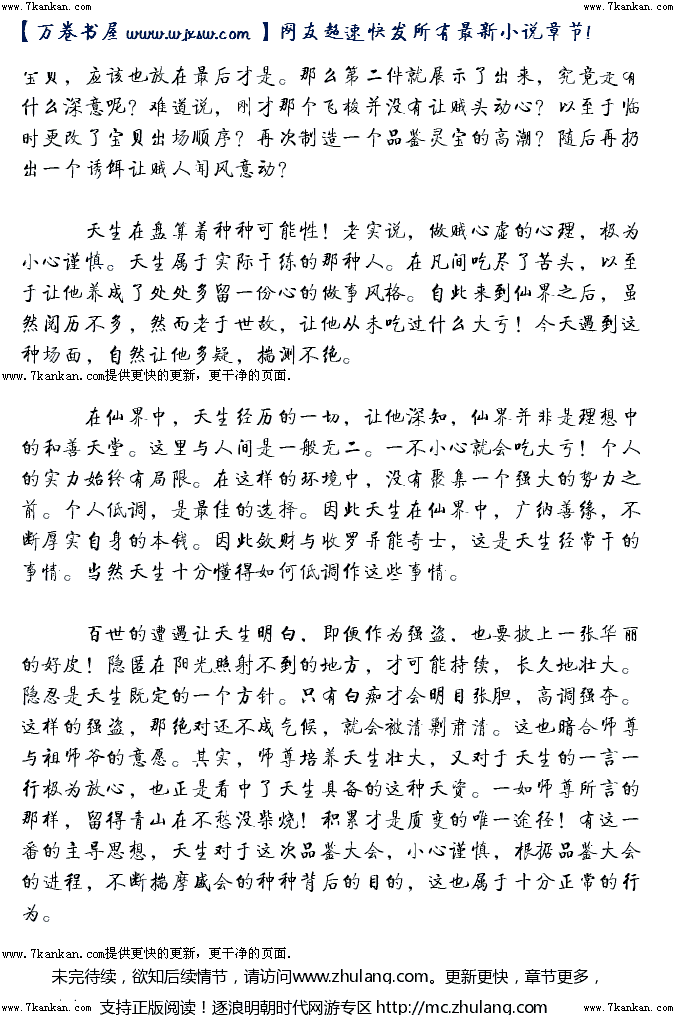 www.7kankan.com www.7kankan.com
【万卷书屋 www.wjxsw.com 】网友超速快发所有最新小说章节!
宝贝，应该也放在最后才是。那么第二件就展示了出来，究竟是有
什么深意呢？难道说，刚才那个飞梭并没有让贼头动心？以至于临
时更改了宝贝出场顺序？再次制造一个品鉴灵宝的高潮？随后再扔
出一个诱饵让贼人闻风意动？
天生在盘算着种种可能性！老实说，做贼心虚的心理，极为
小心谨慎。天生属于实际干练的那种人。在凡间吃尽了苦头，以至
于让他养成了处处多留一份心的做事风格。自此来到仙界之后，虽
然阅历不多，然而老于世故，让他从未吃过什么大亏！今天遇到这
种场面，自然让他多疑，揣测不绝。
www.7kankan.com提供更快的更新，更干净的页面.
在仙界中，天生经历的一切，让他深知，仙界并非是理想中
的和善天堂。这里与人间是一般无二。一不小心就会吃大亏！个人
的实力始终有局限。在这样的环境中，没有聚集一个强大的势力之
前。个人低调，是最佳的选择。因此天生在仙界中，广纳善缘，不
断厚实自身的本钱。因此敛财与收罗异能奇士，这是天生经常干的
事情。当然天生十分懂得如何低调作这些事情。
百世的遭遇让天生明白，即便作为强盗，也要披上一张华丽
的好皮！隐匿在阳光照射不到的地方，才可能持续，长久地壮大。
隐忍是天生既定的一个方针。只有白痴才会明目张胆，高调强夺。
这样的强盗，那绝对还不成气候，就会被清剿肃清。这也暗合师尊
与祖师爷的意愿。其实，师尊培养天生壮大，又对于天生的一言一
行极为放心，也正是看中了天生具备的这种天资。一如师尊所言的
那样，留得青山在不愁没柴烧！积累才是质变的唯一途径！有这一
番的主导思想，天生对于这次品鉴大会，小心谨慎，根据品鉴大会
的进程，不断揣摩盛会的种种背后的目的，这也属于十分正常的行
为。
www.7kankan.com提供更快的更新，更干净的页面.
未完待续，欲知后续情节，请访问www.zhulang.com。更新更快，章节更多，
www.7kankan.com 支持正版阅读！逐浪明朝时代网游专区 http://mc.zhulang.com www.7kankan.com